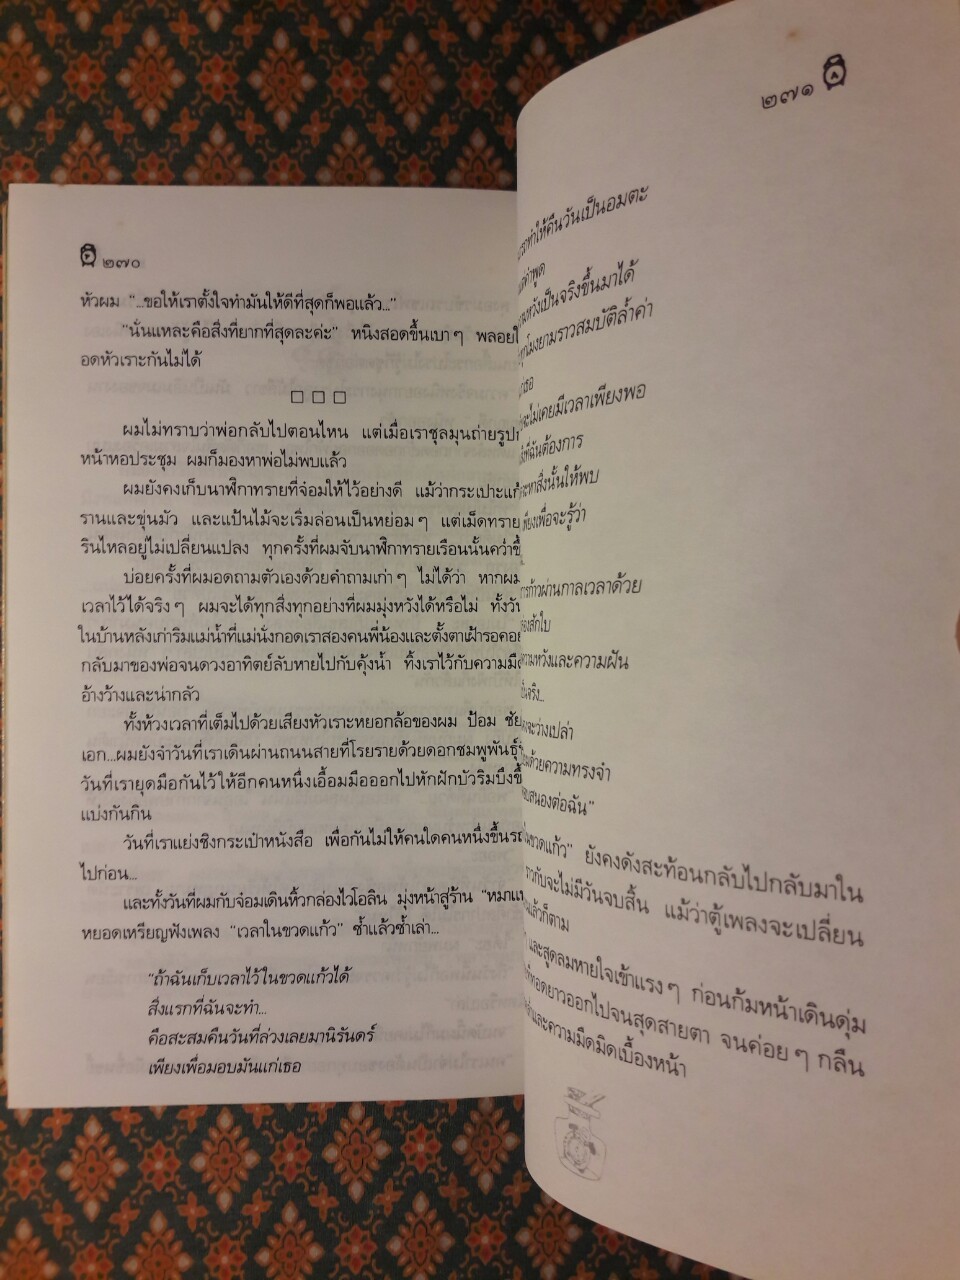 ๒๗๐
หัวผม "...ขอให้เราตั้งใจทำมันให้ดีที่สุดก็พอแล้ว..."
"นั่นแหละคือสิ่งที่ยากที่สุดละค่ะ" หนิงสอดขึ้นเบาๆ พลอย
อดหัวเราะกันไม่ได้
ผมไม่ทราบว่าพ่อกลับไปตอนไหน แต่เมื่อเราชุลมุนถ่ายรูป
หน้าหอประชุม ผมก็มองหาพ่อไม่พบแล้ว
ผมยังคงเก็บนาฬิกาทรายที่จ๋อมให้ไว้อย่างดี แม้ว่ากระเปาะแก้
รานและขุ่นมัว และแป้นไม้จะเริ่มล่อนเป็นหย่อมๆ แต่เม็ดทราย
รินไหลอยู่ไม่เปลี่ยนแปลง ทุกครั้งที่ผมจับนาฬิกาทรายเรือนนั้นคว่ำ
บ่อยครั้งที่ผมอดถามตัวเองด้วยคำถามเก่าๆ ไม่ได้ว่า หากผม
เวลาไว้ได้จริงๆ ผมจะได้ทุกสิ่งทุกอย่างที่ผมมุ่งหวังได้หรือไม่ ทั้งวัน
ในบ้านหลังเก่าริมแม่น้ำที่แม่นั่งกอดเราสองคนพี่น้องและตั้งตาเฝ้ารอคอย
กลับมาของพ่อจนดวงอาทิตย์ลับหายไปกับคุ้งน้ำ ทิ้งเราไว้กับความมืด
อ้างว้างและน่ากลัว
ทั้งห้วงเวลาที่เต็มไปด้วยเสียงหัวเราะหยอกล้อของผม ป้อม ชัย
เอก...ผมยังจำวันที่เราเดินผ่านถนนสายที่โรยรายด้วยดอกชมพูพันธุ์
วันที่เรายุดมือกันไว้ให้อีกคนหนึ่งเอื้อมมือออกไปหักฝักบัวริมบึงขึ้
แบ่งกันกิน
วันที่เราแย่งชิงกระเป๋าหนังสือ เพื่อกันไม่ให้คนใดคนหนึ่งขึ้นรถ
ไปก่อน...
และทั้งวันที่ผมกับจ๋อมเดินหิ้วกล่องไวโอลิน มุ่งหน้าสู่ร้าน "หมกแห
หยอดเหรียญฟังเพลง "เวลาในขวดแก้ว" ซ้ำแล้วซ้ำเล่า...
"ถ้าฉันเก็บเวลาไว้ในขวดแก้วได้
สิ่งแรกที่ฉันจะทำ...
คือสะสมคืนวันที่ล่วงเลยมานิรันดร์
เพียงเพื่อมอบมันแก่เธอ
๒๗๑
ทำให้คืนวันเป็นอมตะ
คำพูด
หวังเป็นจริงขึ้นมาได้
ทุกโมงยามราวสมบัติล้ำค่า
เธอ
จะไม่เคยมีเวลาเพียงพอ
ที่ฉันต้องการ
หาสิ่งนั้นให้พบ
เพียงเพื่อจะรู้ว่า
การก้าวผ่านกาลเวลาด้วย
สักใบ
ความหวังและความฝัน
จริง...
จะว่างเปล่า
ด้วยความทรงจำ
สนองต่อฉัน"
ในขวดแก้ว" ยังคงดังสะท้อนกลับไปกลับมาใน
ราวกับจะไม่มีวันจบสิ้น แม้ว่าตู้เพลงจะเปลี่ยน
แล้วก็ตาม
และสูดลมหายใจเข้าแรงๆ ก่อนก้มหน้าเดินดุ่ม
ที่ทอดยาวออกไปจนสุดสายตา จนค่อยๆ กลืน
และความมืดมิดเบื้องหน้า